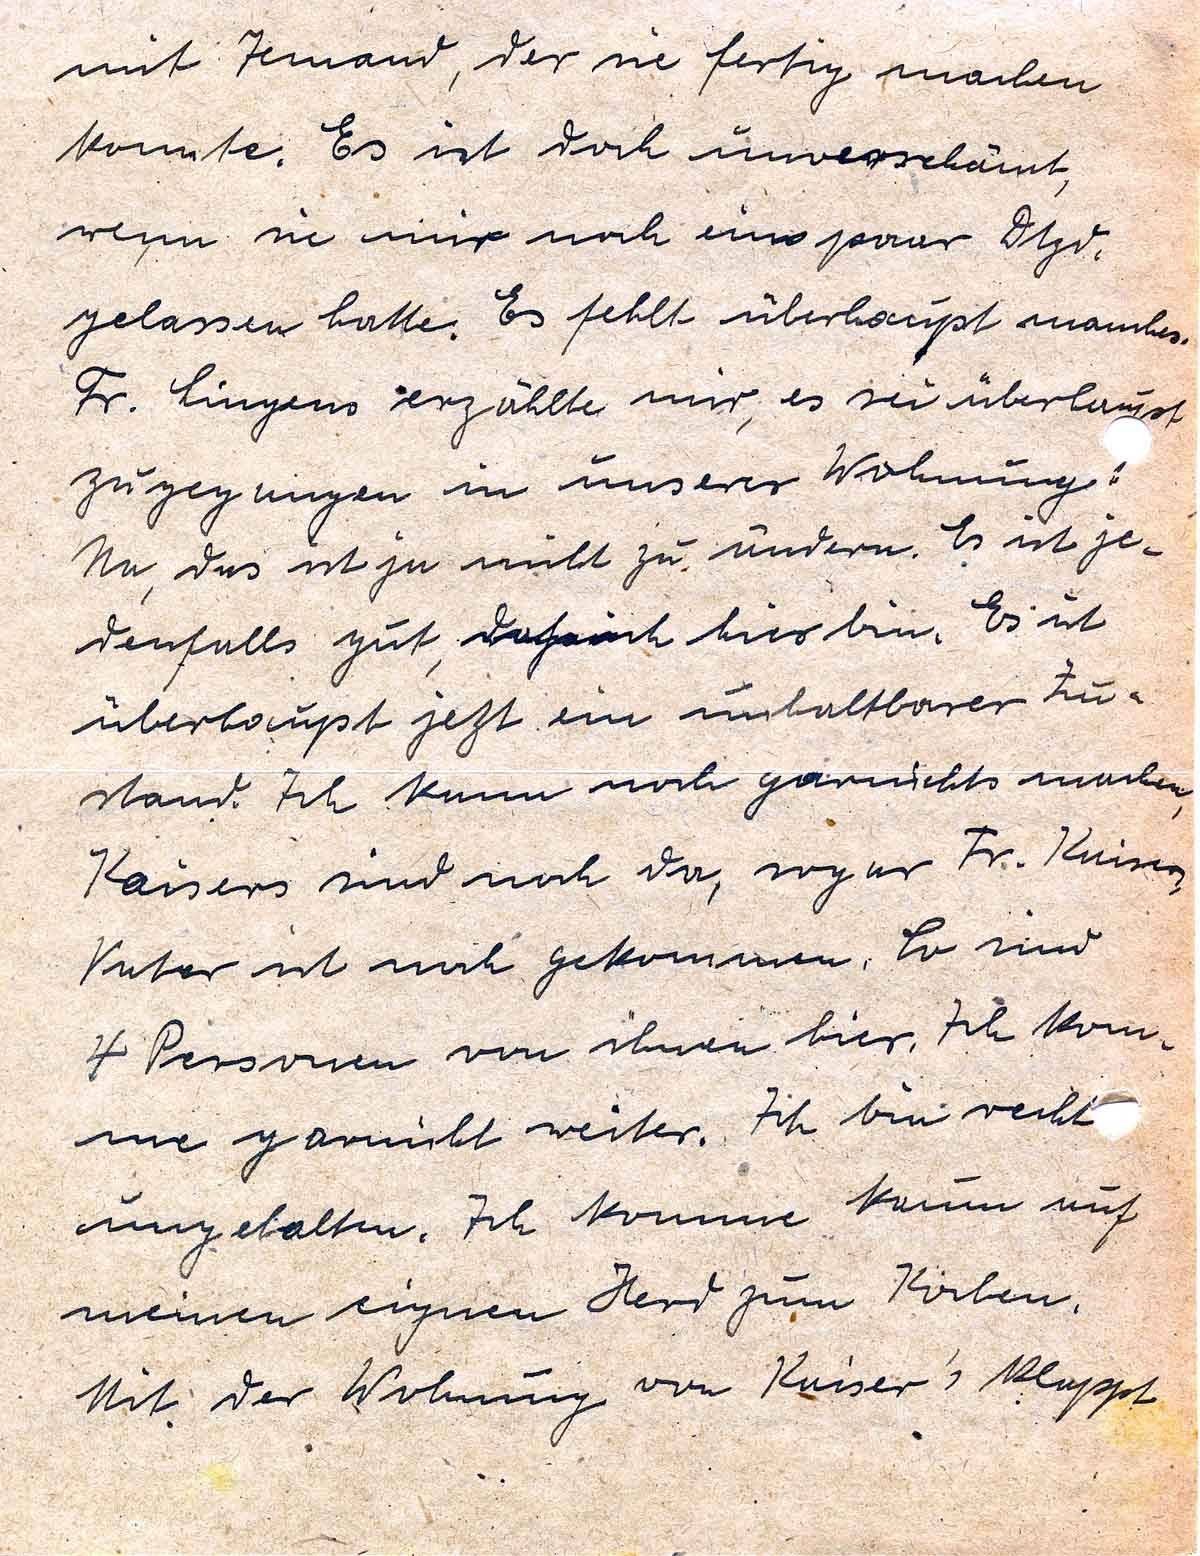 mit Jemand, der sie fertig machen
konnte. Es ist doch unverschämt,
wenn sie mir noch ein paar Dtzd.
gelassen hatte. Es fehlt überhaupt manches.
Fr. Lingens erzählte mir, es sei überhaupt
zugegangen in unserer Wohnung!
Na, das ist ja nicht zu ändern. Es ist je-
denfalls gut, daß ich hier bin. Es ist
überhaupt jetzt ein unhaltbarer Zu-
stand. Ich kann noch garnichts machen,
Kaisers sind noch da, sogar Fr. Kaisers
Vater ist noch gekommen. So sind
4 Personen von ihnen hier. Ich kom-
me garnicht weiter. Ich bin recht
ungehalten. Ich komme kaum auf
meinen eignen Herd zum Kochen.
Mit der Wohnung von Kaiser's klappt